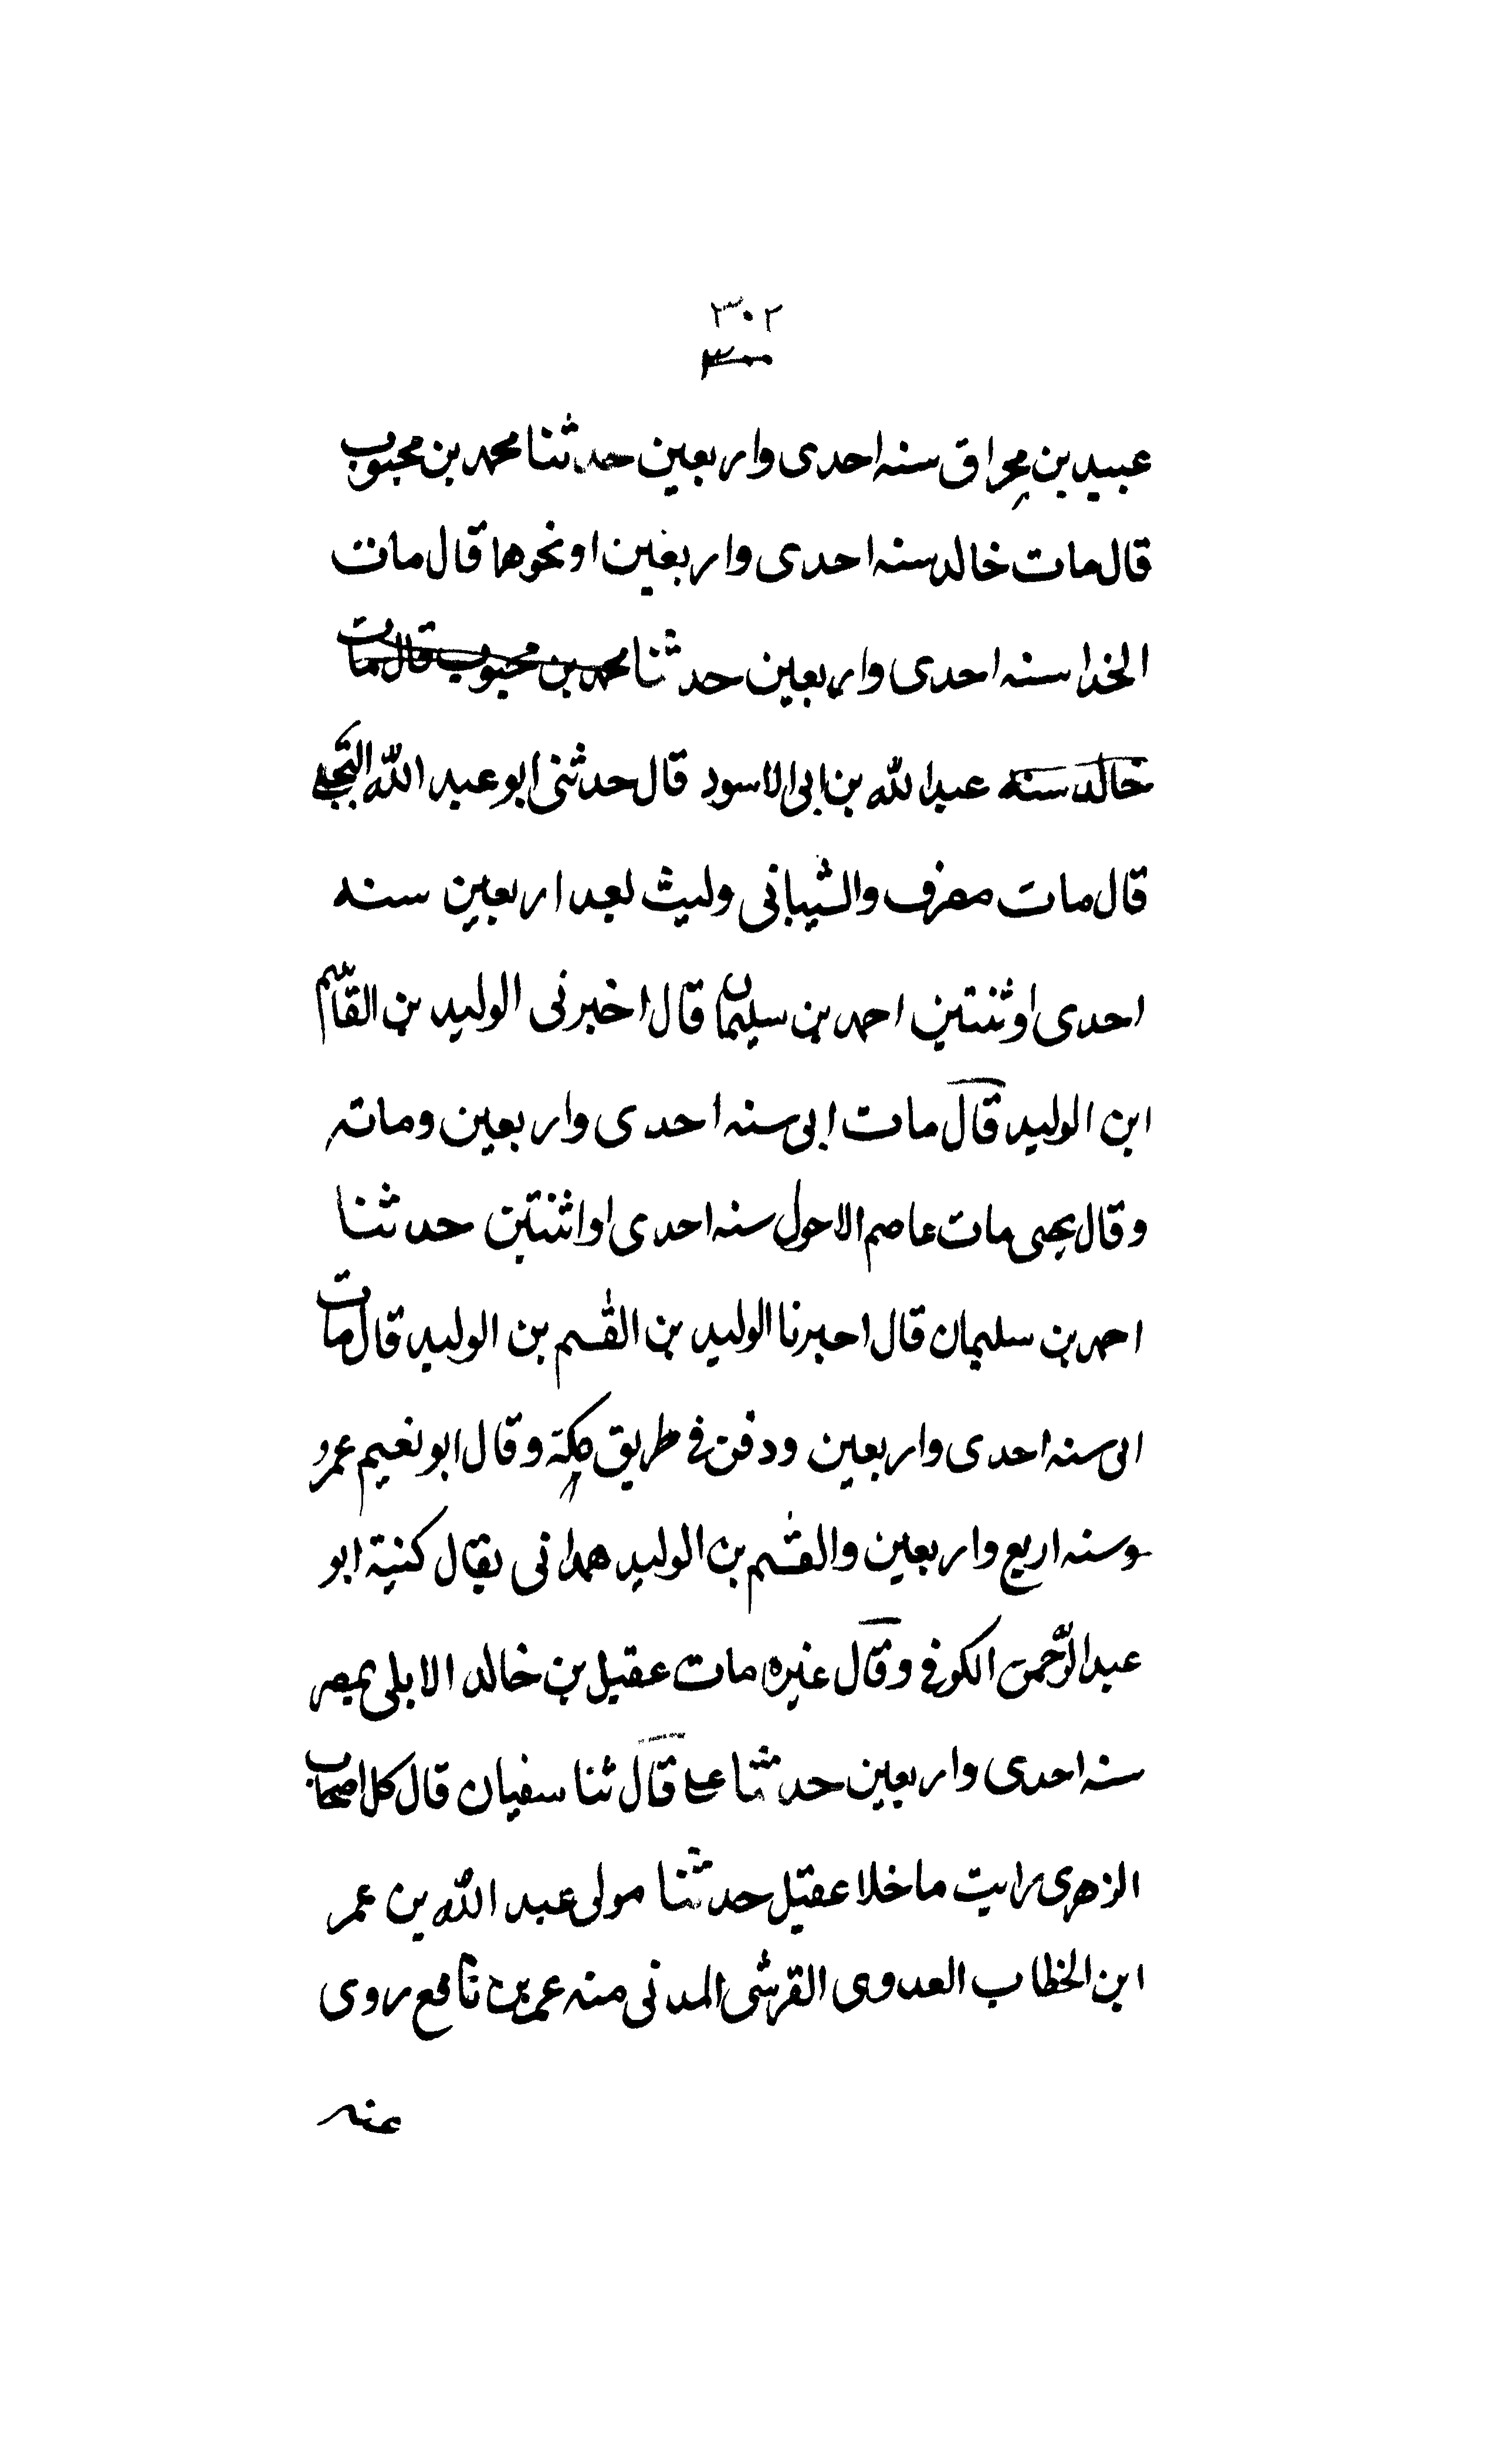 ٣٠٢
٣٠٠
عبيد بن مخراق سنه احدى واربعين حدثنا محمد بن محبوب
قال مات خالد سنه احدى واربعين او نحوها قال مات
الخدا سنه احدى واربعين حدثنا محمد بن محبوب قال مات
خالد سنه عبد الله بن ابى الاسود قال حدثنى ابو عبد الله البجلى
قال مات مطرف والشيبانى وليث بعد اربعين سنه
احدى او ثنتين احمد بن سليمان قال اخبرنى الوليد بن القاسم
ابن الوليد قال مات ابى سنه احدى واربعين ومائه
وقال يحيى مات عاصم الاحول سنه احدى او اثنتين حدثنا
احمد بن سليمان قال احبرنا الوليد بن القسم بن الوليد قال مات
ابى سنه احدى واربعين ودفن فى طريق مكة وقال ابو نعيم عمرو
وسنه اربع واربعين والقسم بن الوليد همدانى يقال كنية ابو
عبد الرحمن الكوفى وقال غيره مات عقيل بن خالد الايلى بمصر
سنه احدى واربعين حدثنا على قال ثنا سفيان قال كل اصحاب
الزهرى رايت ما خلا عقيل حدثنا مولى عبد الله بن عمر
ابن الخطاب العدوى القرشى المدنى منه عمر بن نافع روى
عنه